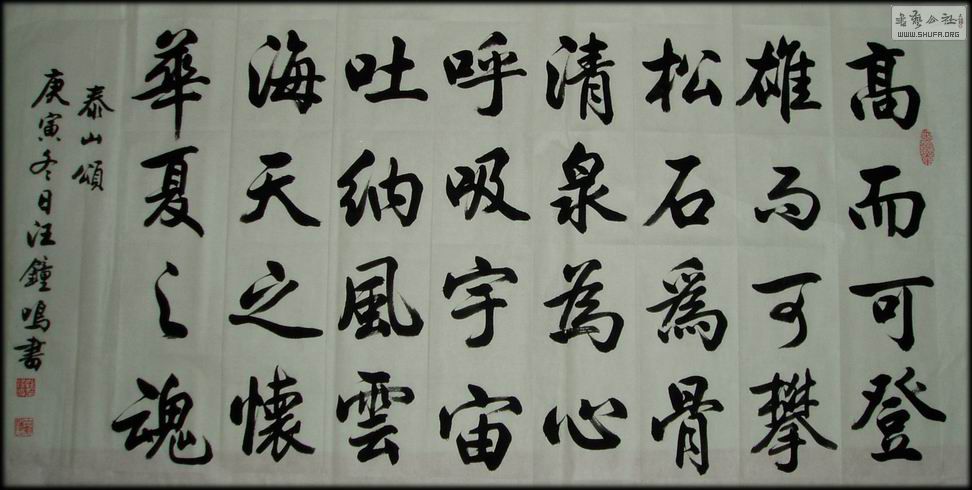 高而可登
雄而可攀
松石為骨
清泉為心
呼吸宇宙
吐納風雲
海天之懷
華夏之魂
泰山頌
庚寅冬日汪鐘鳴書
WWW.SHUFA.ORG